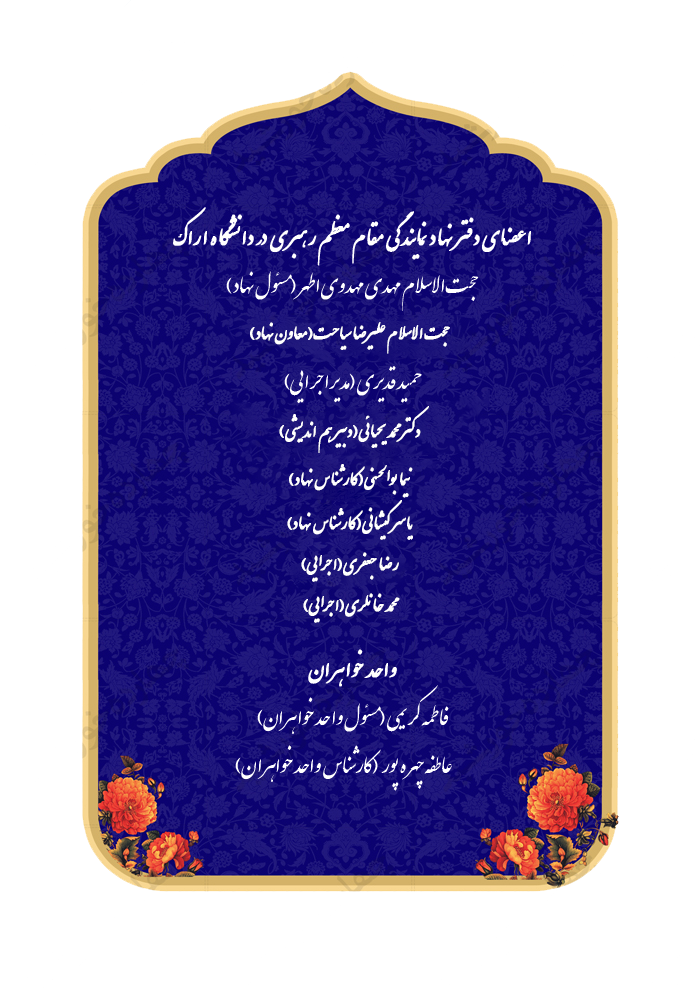 اعضای دفتر نهاد نمایندگی مقام معظم رهبری در دانشگاه اراک
حجت الاسلام مهدی مهدوی اطهر (مسئول نهاد)
حجت الاسلام علیرضا سیاحت (معاون نهاد)
حمید قدیری (مدیر اجرایی)
دکتر محمد یحیائی (دبیر هم اندیشی)
نیما بوالحسنی (کارشناس نهاد)
یاسر کیشانی (کارشناس نهاد)
رضا جعفری (اجرایی)
محمد خانلری (اجرایی)
واحد خواهران
فاطمه کریمی (مسئول واحد خواهران)
عاطفه چهره پور (کارشناس واحد خواهران)